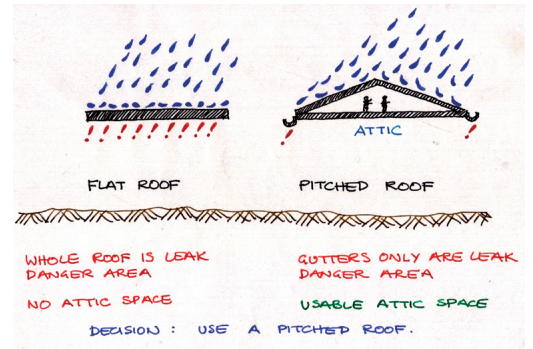 ATTIC
FLAT ROOF
PITCHED ROOF
WHOLE ROOF IS LEAK
DANGER AREA
NO ATTIC SPACE
GUTTERS ONLY ARE LEAK
DANGER AREA
USABLE ATTIC SPACE
DECISION : USE A PITCHED ROOF.